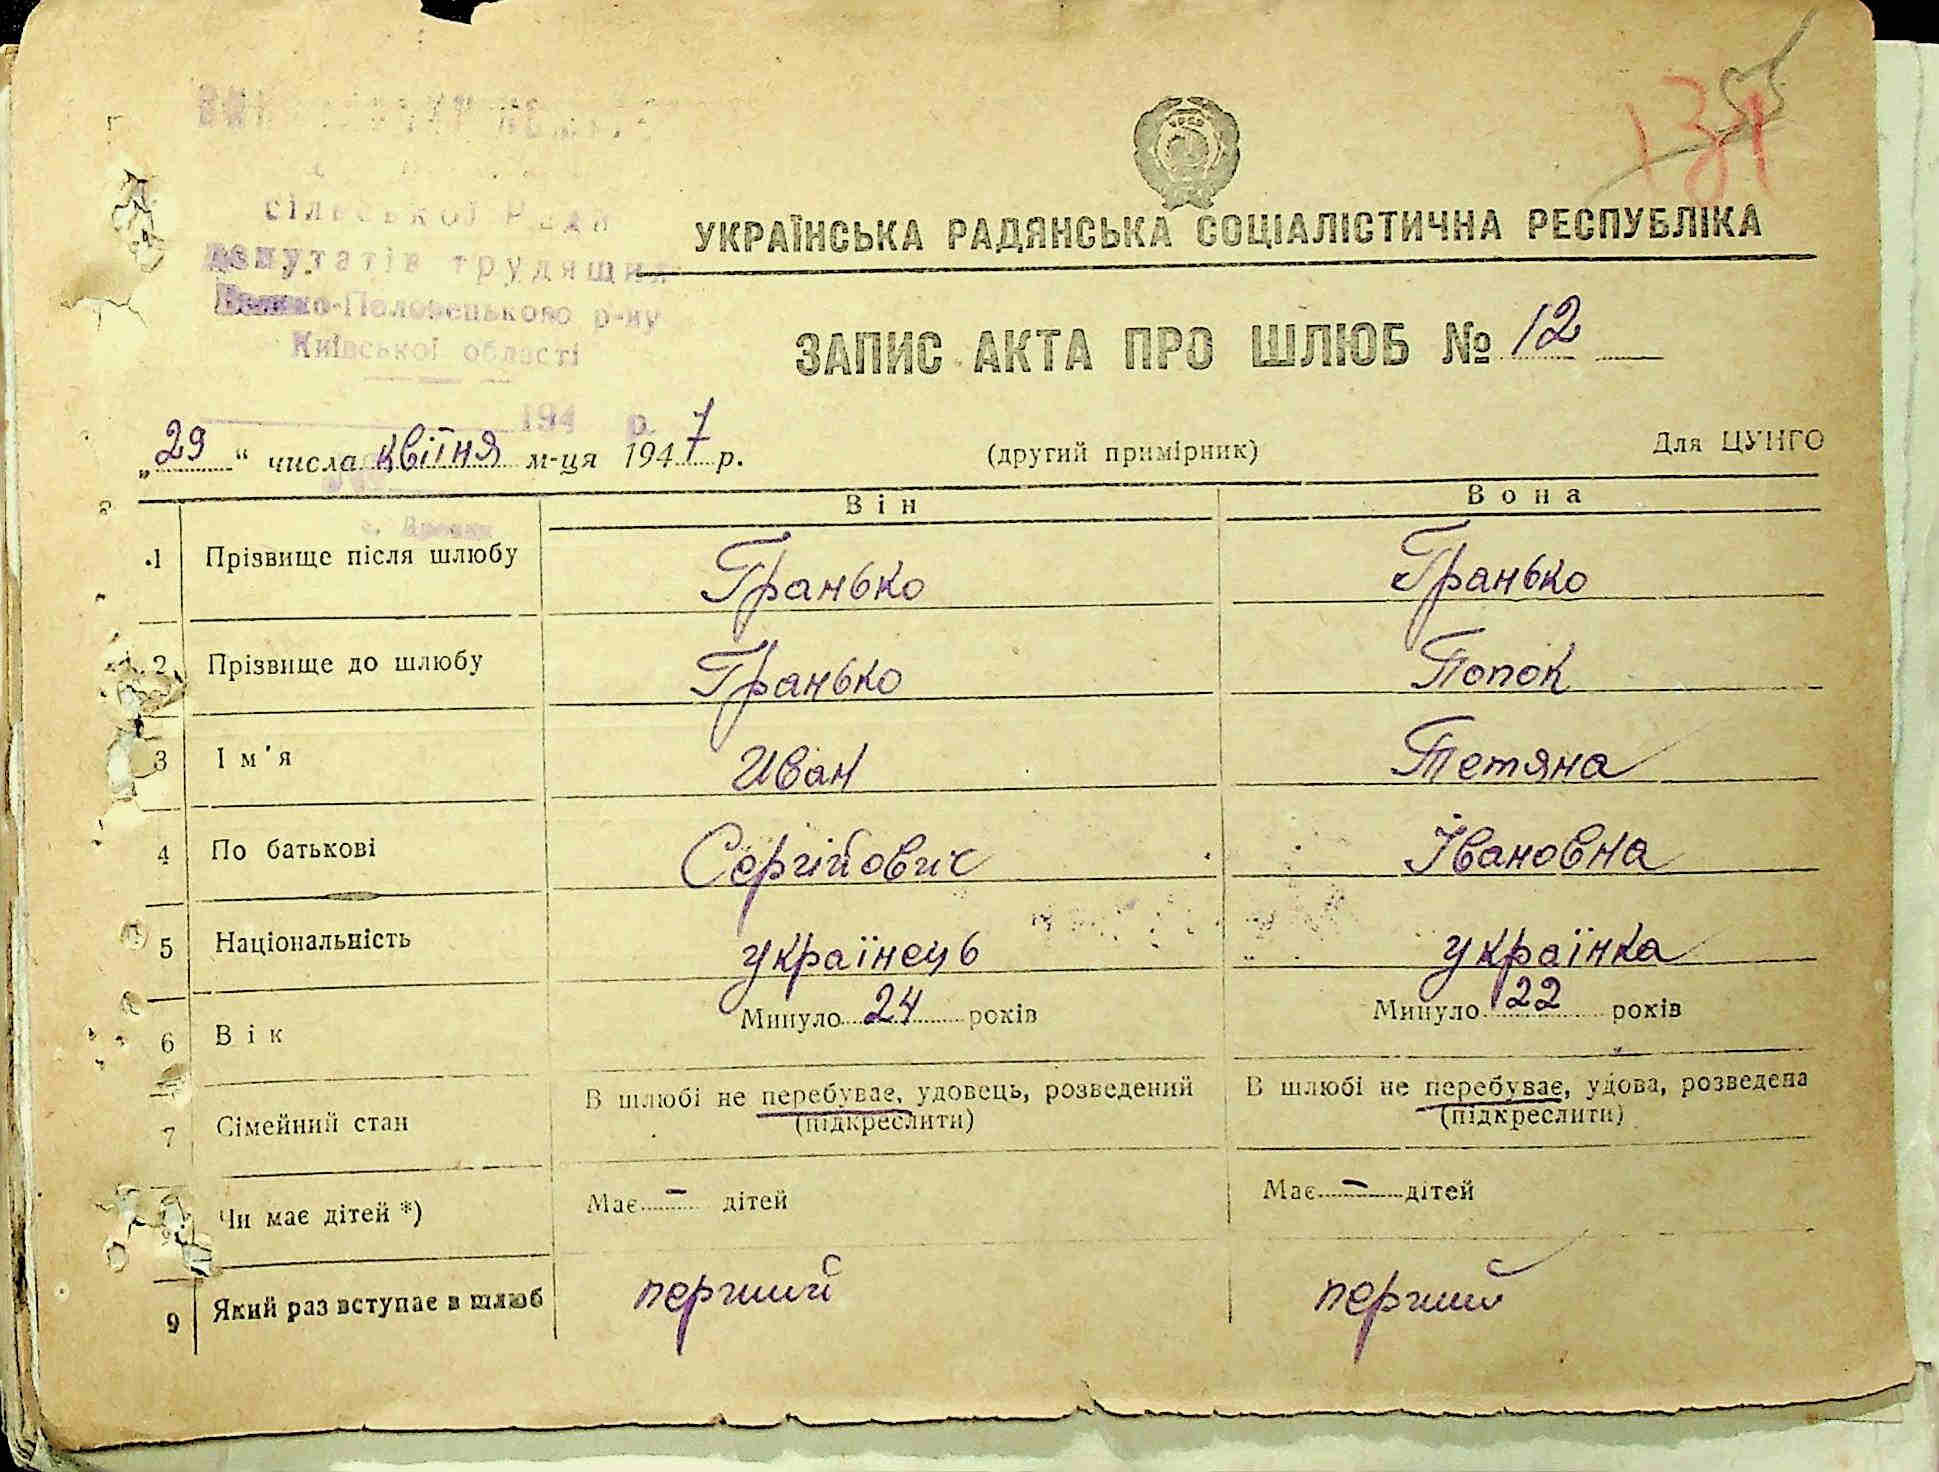 сільської Ради
депутатів трудящих
Велико-Половецького р-ну
Київської області
194 р.
131
55
УКРАЇНСЬКА РАДЯНСЬКА СОЦІАЛІСТИЧНА РЕСПУБЛІКА
ЗАПИС АКТА ПРО ШЛЮБ № 12
„29“ числа квітня м-ця 1947 р. (другий примірник) Для ЦУНГО
Він Вона
1 Прізвище після шлюбу Гранько Гранько
2 Прізвище до шлюбу Гранько Попок
3 Ім'я Иван Тетяна
4 По батькові Сергійович Івановна
5 Національність українець українка
6 Вік Минуло 24 років Минуло 22 років
7 Сімейний стан В шлюбі не перебуває, удовець, розведений В шлюбі не перебуває, удова, розведена
(підкреслити) (підкреслити)
Чи має дітей *) Має – дітей Має – дітей
9 Який раз вступає в шлюб перший перший